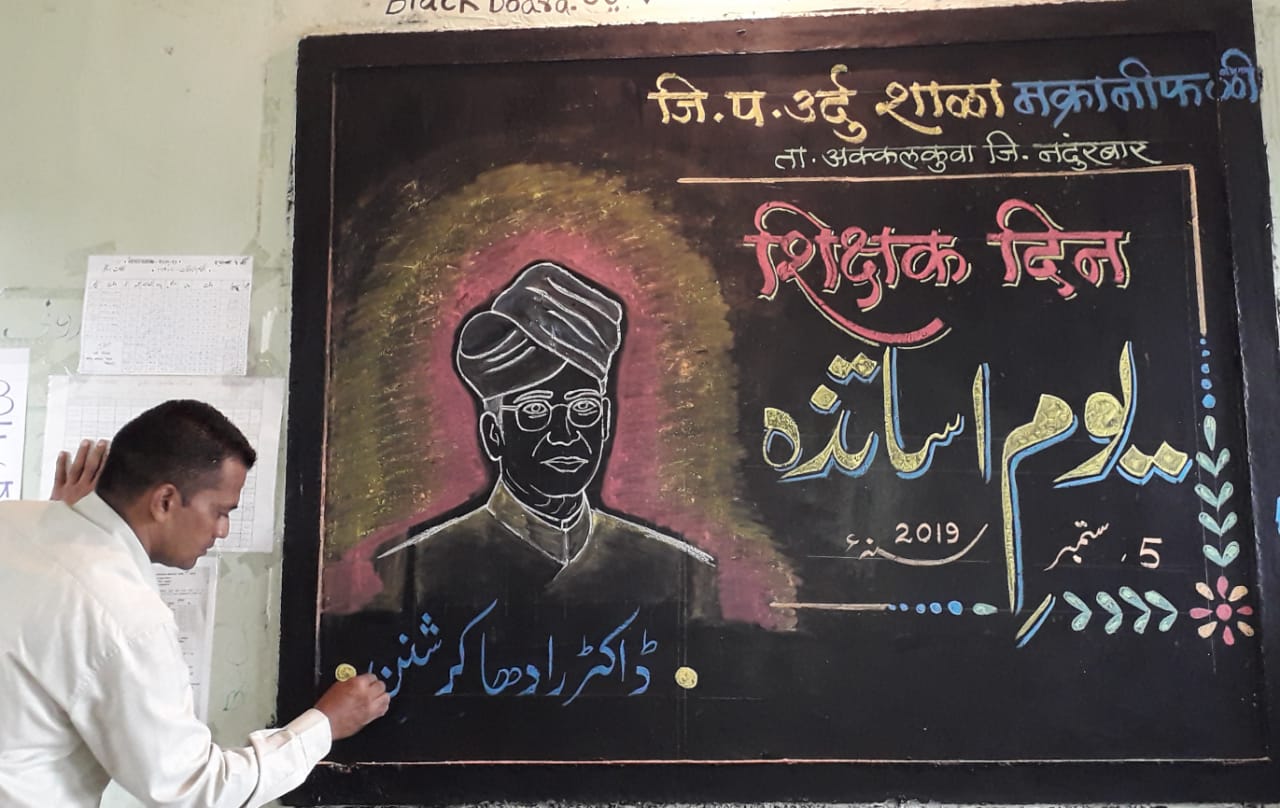 Black board.
जि.प.उर्दु शाळा मक्रानीफळी
ता.अक्कलकुवा जि.नंदुरबार
शिक्षक दिन
یوم اساتذہ
5 ستمبر، 2019 سنہء
ڈاکٹر رادھا کرشنن